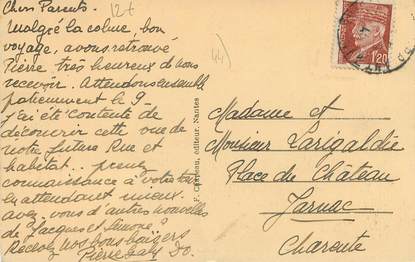 Chers Parents.
12f
Malgré la cohue, bon
voyage, avons retrouvé
Pierre très heureux de nous
recevoir. Attendons ensemble
patiemment le 9-
J'ai été contente de
découvrir cette vue de
votre future Rue et
habitat.. prenez
connaissance à votre tour
en attendant mieux.
avez vous d'autres nouvelles
de Jacques et
Recevez nos bons baisers
Pierre
(44)
F. Chapeau, éditeur, Nantes
1f20
Madame et
Monsieur Larigaldie
Place du Château
Jarnac
Charente